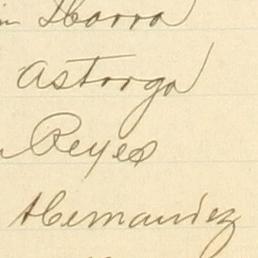 Ibarra
Astorga
Reyes
Hernandez